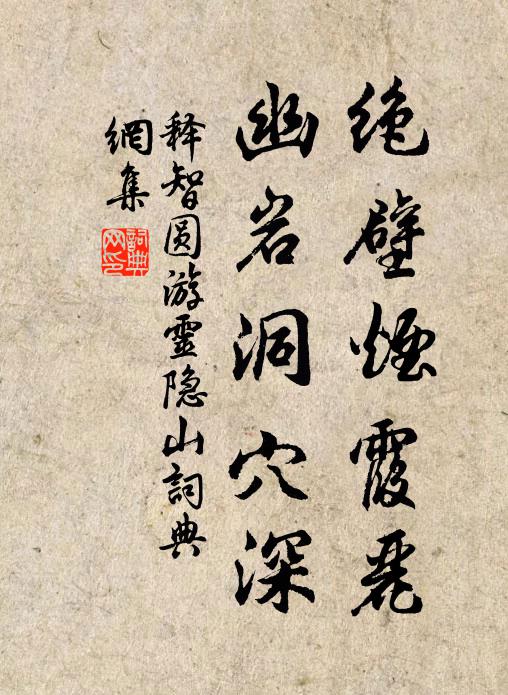 绝壁烟霞丽
幽岩洞穴深
释智圆游靈隐山詞典
網集
詞典
网印